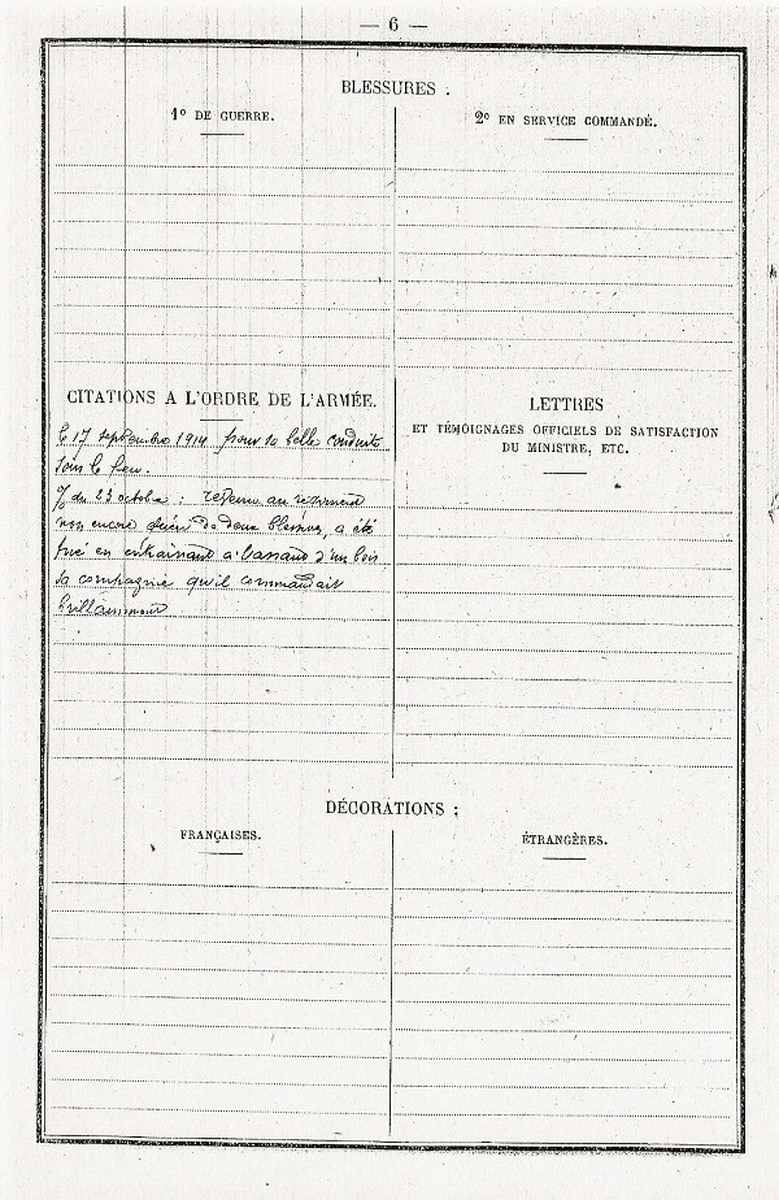 — 6 —
BLESSURES :
1° DE GUERRE.
2° EN SERVICE COMMANDÉ.
CITATIONS A L'ORDRE DE L'ARMÉE.
le 17 septembre 1914 pour sa belle conduite
sous le feu.
du 23 octobre : revenu au régiment
non encore guéri de deux blessures, a été
tué en entraînant à l'assaut d'un bois
sa compagnie qu'il commandait
brillamment
LETTRES
ET TÉMOIGNAGES OFFICIELS DE SATISFACTION
DU MINISTRE, ETC.
DÉCORATIONS :
FRANÇAISES.
ÉTRANGÈRES.